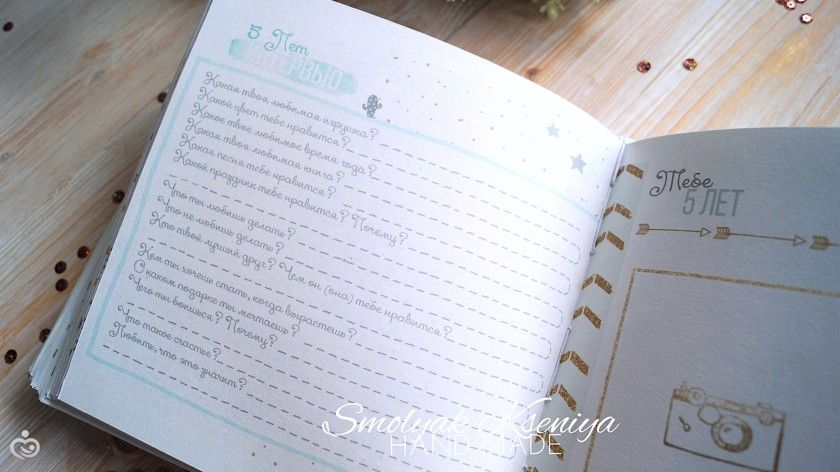 5 Лет
ИНТЕРВЬЮ
Какая твоя любимая игрушка?
Какой цвет тебе нравится?
Какое твое любимое время года?
Какая твоя любимая книга?
Какая песня тебе нравится?
Какой праздник тебе нравится? Почему?
Что ты любишь делать?
Что не любишь делать?
Кто твой лучший друг? Чем он (она) тебе нравится?
Кем ты хочешь стать, когда вырастешь?
О каком подарке ты мечтаешь?
Чего ты боишься? Почему?
Что такое счастье?
Любить, что это значит?
Тебе
5 ЛЕТ
Smolyak Kseniya
HAND MADE